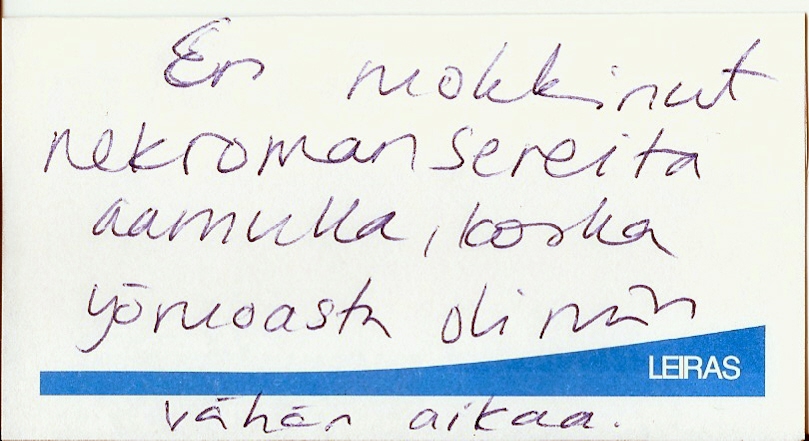 En ruokkinut
nekromansereita
aamulla, koska
yöruoasta oli niin
LEIRAS
vähän aikaa.